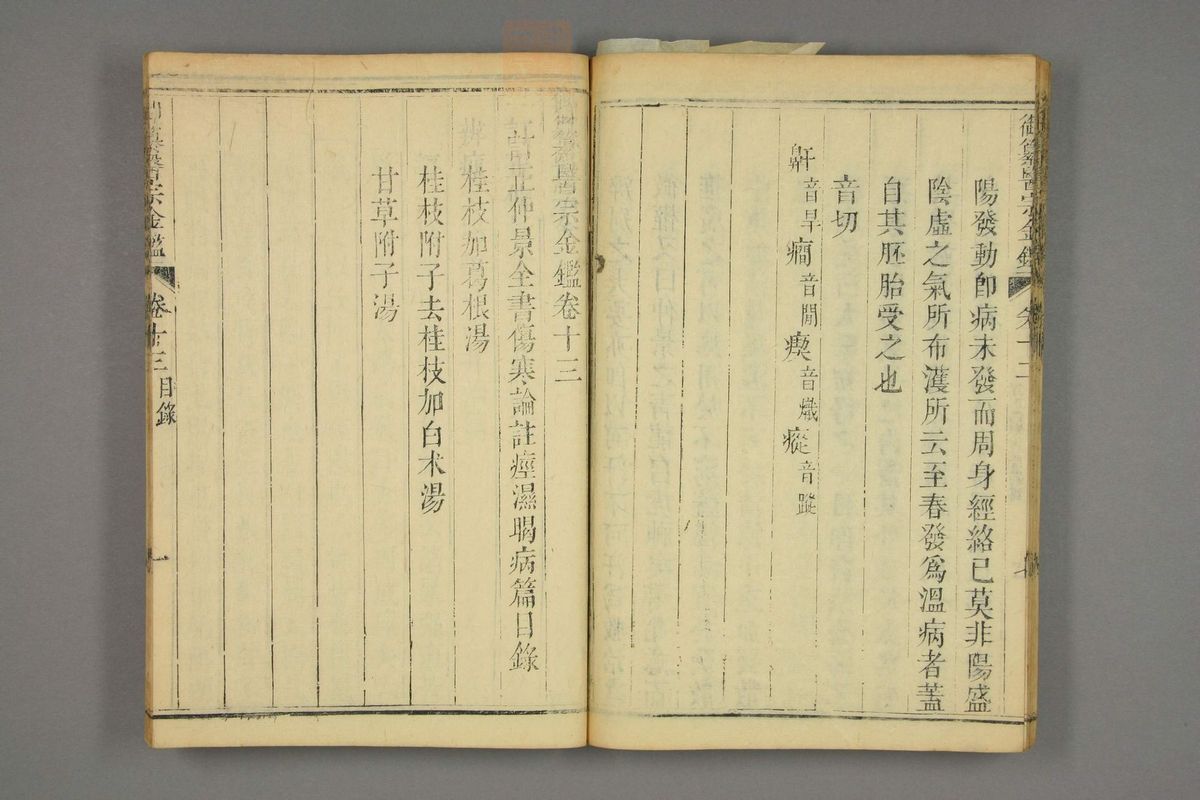 陽發動卽病未發而周身經絡已莫非陽盛
陰虛之氣所布濩所云至春發爲溫病者蓋
自其胚胎受之也
音切
鼾音旱癎音閒瘈音熾瘲音蹤
御纂醫宗金鑑卷十三
訂正仲景全書傷寒論註痙濕暍病篇目錄
桂枝加葛根湯
桂枝附子去桂枝加白朮湯
甘草附子湯
御纂醫宗金鑑 卷十三 目錄 一